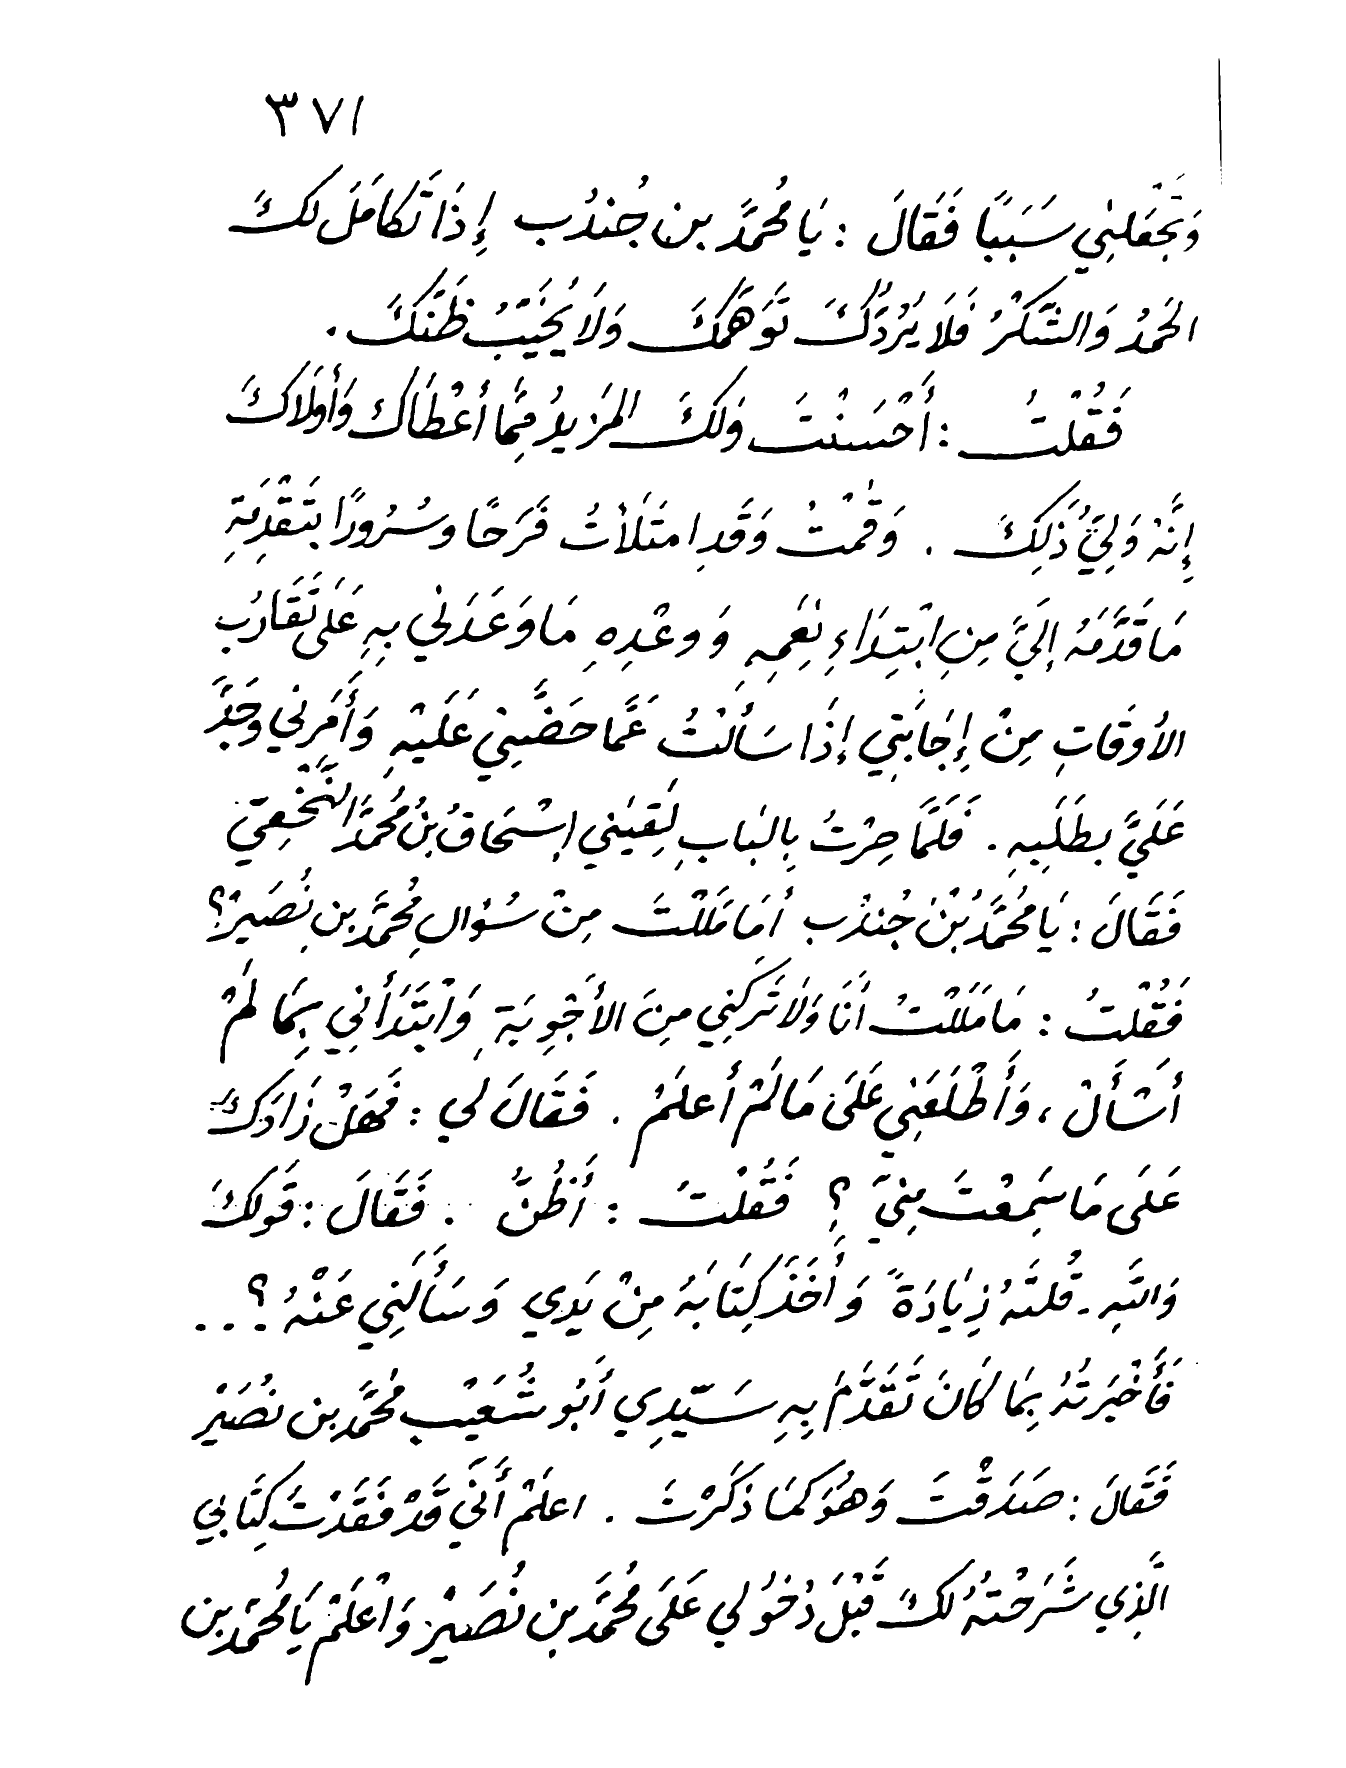 ٣٧١
وَتَجْعَلَنِي سَبَبًا فَقَالَ : يَا مُحَمَّدَ بن جُندُب إِذَا تَكَامَلَ لَكَ
الحَمْدُ وَالشُّكْرُ فَلَا يَرُدُّكَ تَوَهُّمَكَ وَلَا يُخَيِّبُ ظَنَّكَ .
فَقُلْتُ : أَحْسَنْتَ وَلَكَ المَزيدُ مِمَّا أَعْطَاكَ وَأَوْلَاكَ
إِنَّهُ وَلِيُّ ذَلِكَ . وَقُمْتُ وَقَدِ امتَلَأتُ فَرَحًا وسُرُورًا بتَقْدِمَةِ
مَا قَدَّمَهُ إِلَيَّ مِنِ ابْتِدَاءِ نِعَمِهِ وَوعْدِهِ مَا وَعَدَنِي بِهِ عَلَى تَقَارُب
الأوقَاتِ مِنْ إِجَابَتِي إِذَا سَأَلْتُ عَمَّا حَضَّنِي عَلَيْهِ وَأَمَرنِي وَجَدَّ
عَلَيَّ بطَلَبِهِ . فَلَمَّا صِرْتُ بِالبَابِ لَقِيَني إِسْحَاقُ بنُ مُحَمَّدٍ النَّخْعِيّ
فَقَالَ : يَا مُحَمَّدُ بْنَ جُندُب أَمَا مَلَلْتَ مِنْ سُؤالِ مُحَمَّدِ بنِ نُصَيرْ؟
فَقُلْتُ : مَا مَلَلْتُ أَنَا وَلَا تَركَنِي مِنَ الأَجْوِبَةِ وَابْتَدَأنِي بِمَا لَمْ
أَسْأَلْ ، وَأَطْلَعَنِي عَلَى مَا لَمْ أَعلَمْ . فَقَالَ لي : فَهَلْ زَادَكَ
عَلَى مَا سَمِعْتَ مِنِّي ؟ فَقُلْتُ : أَظُنُّ . فَقَالَ : قَولكَ
وَاللَّهِ ـ قُلتَهُ زِيَادَةً وَأَخَذَ كِتَابَهُ مِنْ يَدِي وَسَأَلَنِي عَنْهُ ؟ ...
فَأَخْبَرتُهُ بِمَا كَانَ تَقَدَّمَ بِهِ سَيِّدِي أَبُو شُعَيْب مُحَمَّدِ بن نُصَيْر
فَقَالَ : صَدَقْتَ وَهُوَ كمَا ذَكَرْتَ . اعلَمْ أَنِّي قَدْ فَقَدْتُ كِتَابي
الَّذِي شَرَحْتُهُ لَكَ قَبْلَ دُخُولي عَلَى مُحَمَّدِ بنِ نُصَيْرْ وَاعْلَمْ يَا مُحَمَّدَ بن